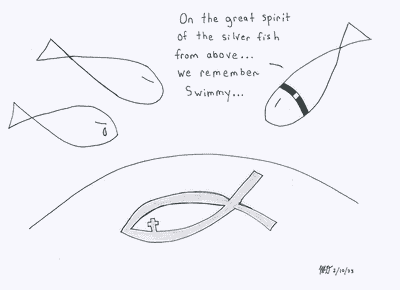 On the great spirit
of the silver fish
from above...
we remember
Swimmy...
2/12/23